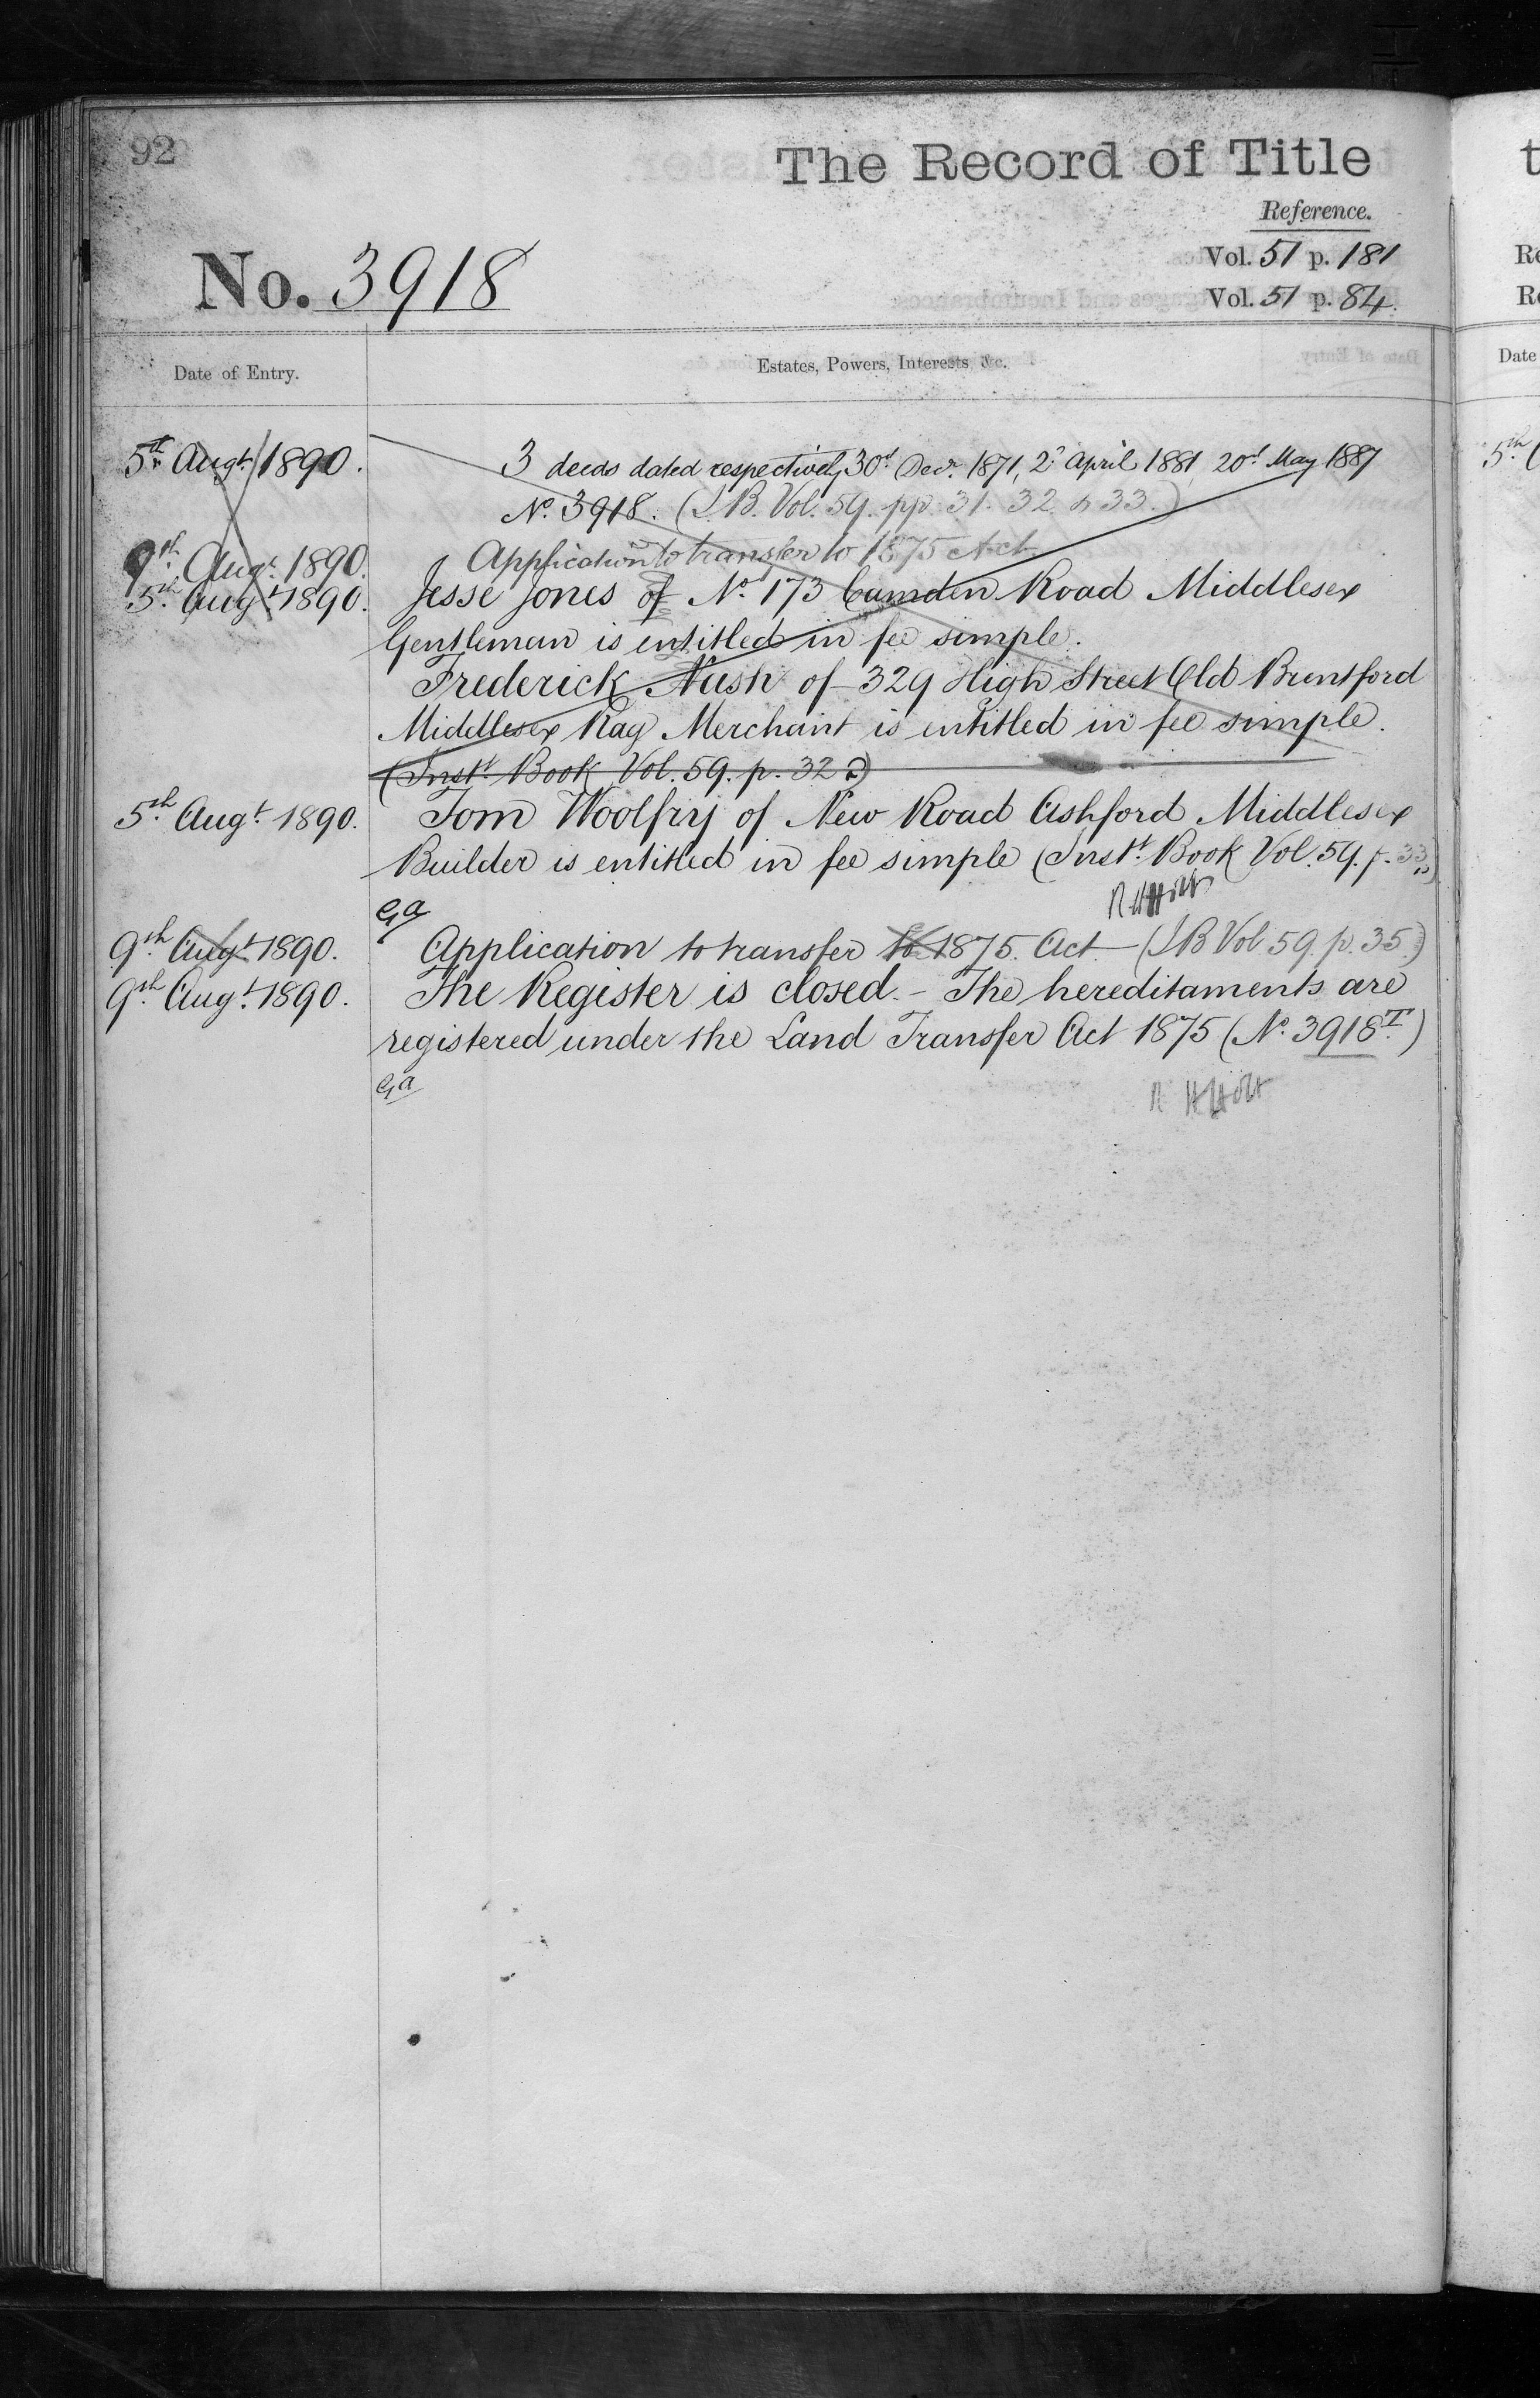 92
The Record of Title
Reference.
No. 3918
Vol. 51 p. 181
Vol. 51 p. 84.
Date of Entry.
Estates, Powers, Interests &c.
5th Augt. 1890.
3 deeds dated respectively 30th Decr. 1871, 2d April 1881 20th May 1887
No. 3918. (I.B. Vol. 59. pp. 31. 32. & 33.)
9th Augt. 1890.
Application to transfer to 1875 Act
5th Augt. 1890.
Jesse Jones of No. 173 Camden Road Middlesex
Gentleman is entitled in fee simple.
Frederick Nash of 329 High Street Old Brentford
Middlesex Rag Merchant is entitled in fee simple.
(Instt. Book Vol. 59. p. 32.)
5th Augt. 1890.
Tom Woolfry of New Road Ashford Middlesex
Builder is entitled in fee simple (Instt. Book Vol. 59. p. 33.)
9th Augt. 1890.
Application to transfer to 1875. Act (I.B Vol 59. p. 35.)
9th Augt. 1890.
The Register is closed. - The hereditaments are
registered under the Land Transfer Act 1875 (No. 3918T.)
Date
5th